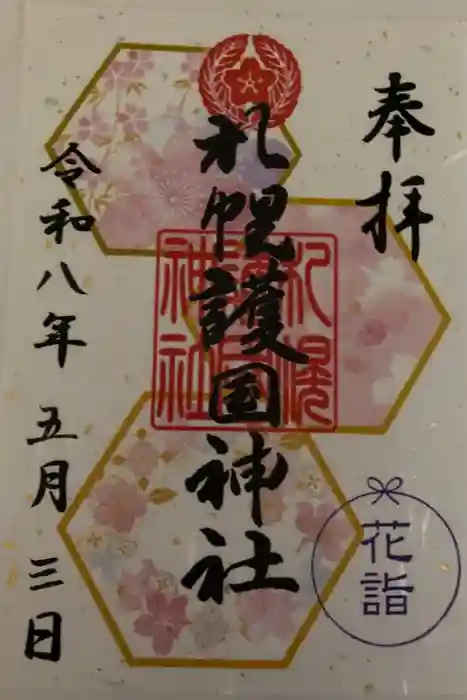 奉拝
札幌護国神社
札幌
護国
神社
令和八年 五月 三日
花
詣